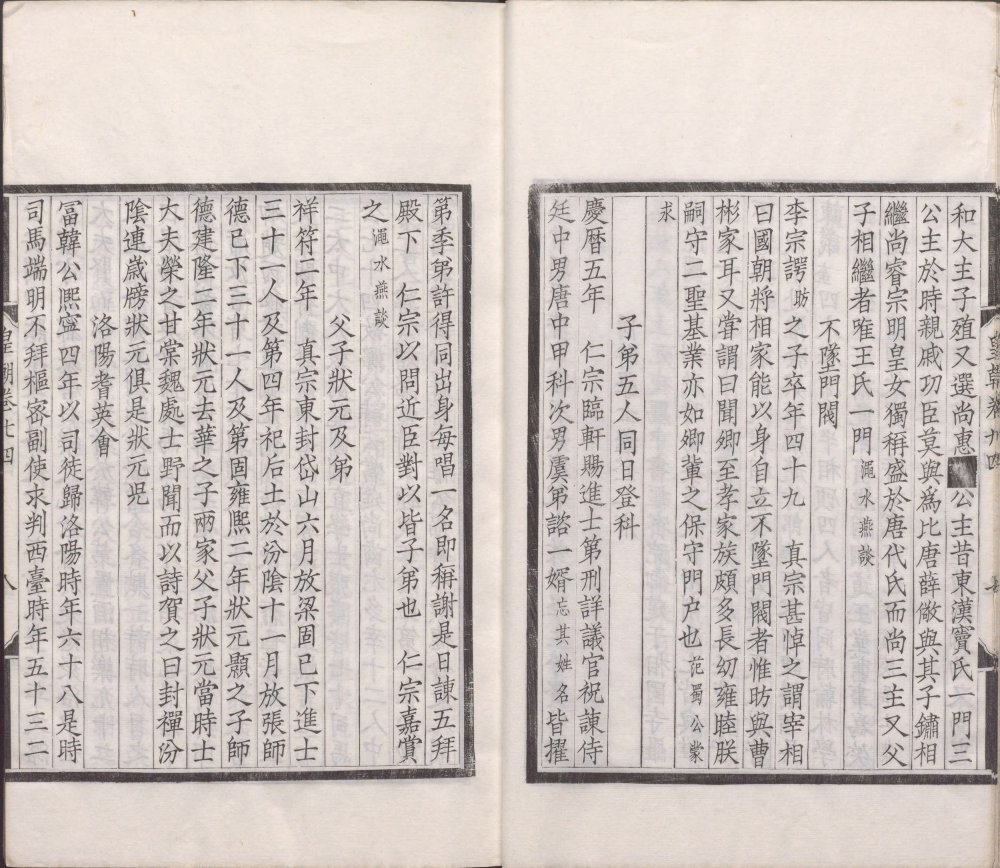 和大主子殖又選尚惠公主昔東漢竇氏一門三
公主於時親戚功臣莫與為比唐薛儆與其子鏽相
繼尚睿宗明皇女獨稱盛於唐代氏而尚三主又父
子相繼者唯王氏一門澠水燕談
不墜門閥
李宗諤昉之子卒年四十九 真宗甚悼之謂宰相
曰國朝將相家能以身自立不墜門閥者惟昉與曹
彬家耳又嘗謂曰聞卿至孝家族頗多長幼雍睦朕
嗣守二聖基業亦如卿輩之保守門户也范蜀公蒙
求
子弟五人同日登科
慶曆五年 仁宗臨軒賜進士第刑詳議官祝諫侍
廷中男唐中甲科次男虞弟諮一婿忘其姓名皆擢
第季弟許得同出身每唱一名即稱謝是日諫五拜
殿下 仁宗以問近臣對以皆子弟也 仁宗嘉賞
之澠水燕談
父子狀元及第
祥符二年 真宗東封岱山六月放梁固已下進士
三十一人及第四年祀后土於汾陰十一月放張師
德已下三十一人及第固雍熙二年狀元顥之子師
德建隆二年狀元去華之子兩家父子狀元當時士
大夫榮之甘棠魏處士野聞而以詩賀之曰封禪汾
陰連歲牓狀元俱是狀元兒
洛陽耆英會
富韓公熙寧四年以司徒歸洛陽時年六十八是時
司馬端明不拜樞密副使求判西臺時年五十三二
八